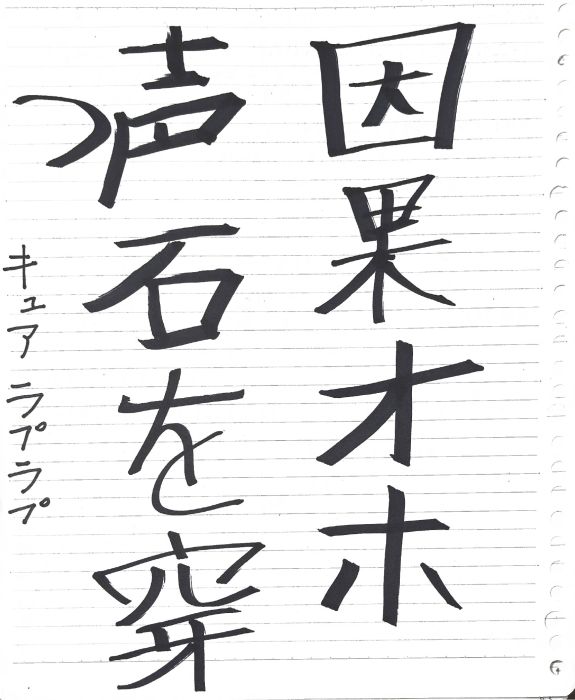 因果オホ
声石を穿
つ
キュア ラプラプ